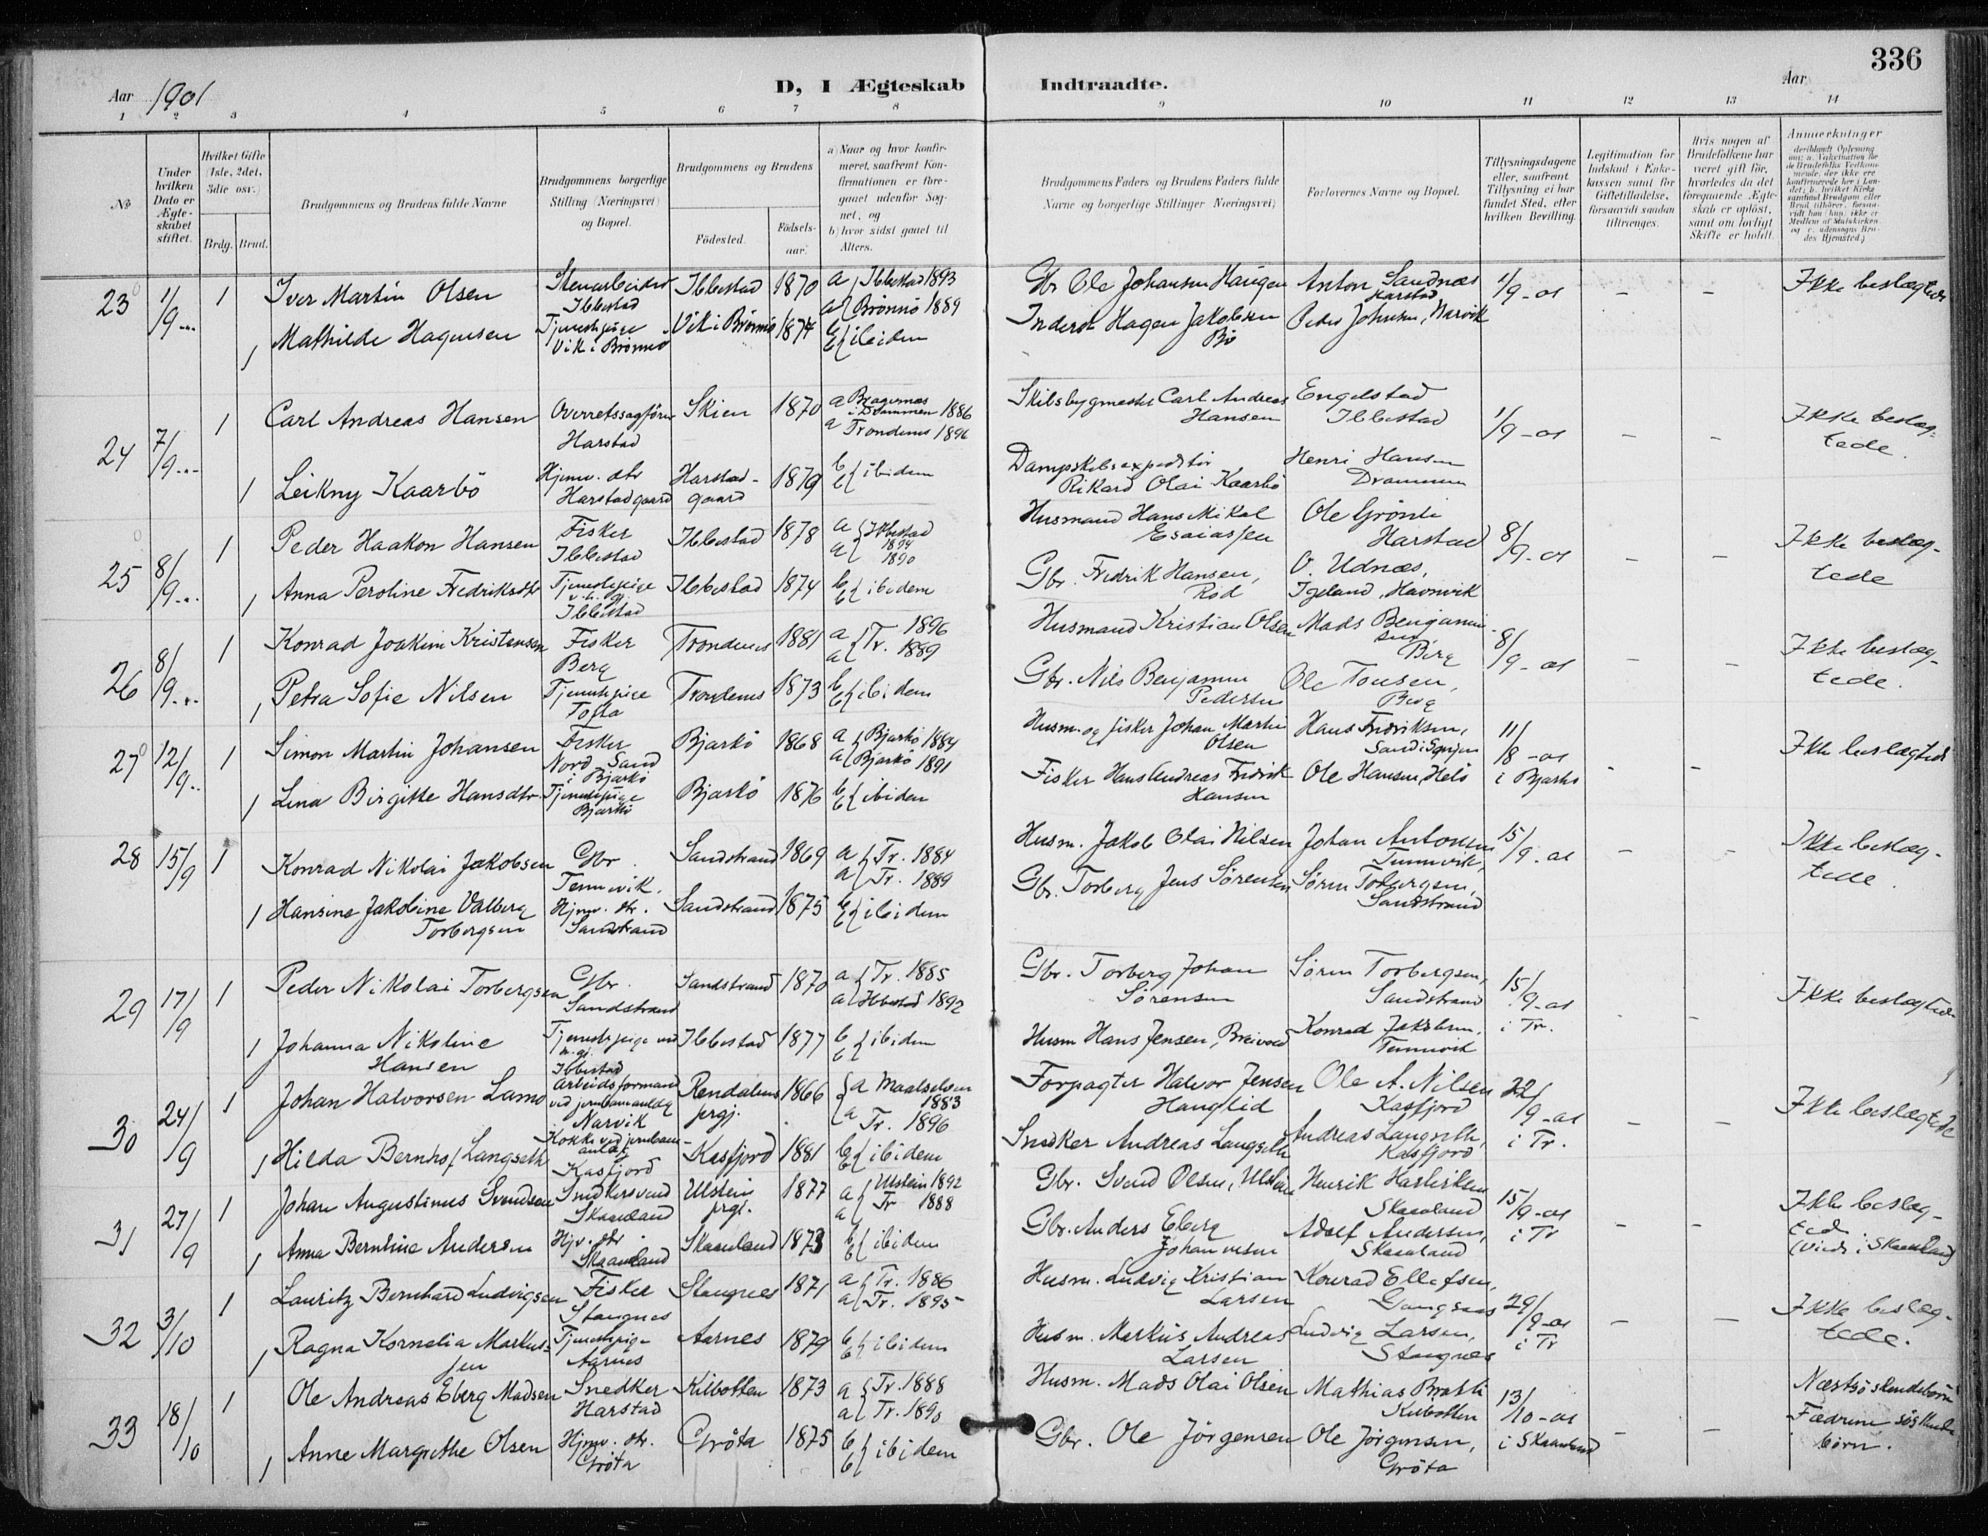 336
Aar 1901
D, I Ægteskab Indtraadte.
Aar
1 2 3 4 5 6 7 8 9 10 11 12 13 14
No
Under hvilken Dato er Ægteskabet stiftet.
Hvilket Gifte (1ste, 2det, 3die osv.)
Brdg. Brud.
Brudgommens og Brudens fulde Navne
Brudgommens borgerlige Stilling (Næringsvei) og Bopæl.
Brudgommens og Brudens
Födested.
Födsels-aar.
a) Naar og hvor konfirmeret, saafremt Konfirmationen er foregaaet udenfor Sognet, og
b) hvor sidst gaaet til Alters.
Brudgommens Faders og Brudens Faders fulde Navne og borgerlige Stillinger (Næringsvei)
Forlovernes Navne og Bopæl.
Tillysningsdagene eller, saafremt Tillysning ei har fundet Sted, efter hvilken Bevilling.
Legitimation for Indskud i Enkekassen samt for Giftetilladelse, forsaavidt saadan tiltrænges.
Hvis nogen af Brudefolkene har været gift för, hvorledes da det foregaaende Ægteskab er oplöst, samt om lovligt Skifte er holdt.
Anmerkninger
23 1/9 1 Iver Martin Olsen Stenarbeider Ibbestad Ibbestad 1870 a Ibbestad 1893 a Brønnö 1889 Gbr Ole Johansen Haugen Anton Sandnæs Harstad 1/9-01 – – Ikke beslægtede
1 Mathilde Hagensen Tjenestepige Vik i Brønnö Vik i Brønnö 1874 b ibidem Inderst Hagen Jakobsen Bö Peder Johnsen, Narvik
24 7/9 1 Carl Andreas Hansen Overretssagförer Harstad Skien 1870 a Bragernæs i Drammen 1886 a Trondenes 1896 Skibsbygmester Carl Andreas Hansen Engelstad Ibbestad 1/9-01 – – Ikke beslægtede.
1 Leikny Kaarbö Hjemv. dtr Harstadgaard Harstadgaard 1879 b ibidem Dampskibsexpeditör Rikard Olai Kaarbö Henri Hansen Drammen
25 8/9 1 Peder Haakon Hansen Fisker Ibbestad Ibbestad 1878 a Ibbestad 1894 a 1890 Husmand Hans Mikal Esaiassen Ole Grönli Harstad 8/9-01 – – Ikke beslægtede
1 Anna Peroline Fredriksdtr Tjenestepige Ibbestad Ibbestad 1874 b ibidem Gbr. Fredrik Hansen, Röd O. Udnæs, Igeland, Havnvik
26 8/9 1 Konrad Joakim Kristensen Fisker Berg Trondenes 1881 a 1896 a Tr. 1889 Husmand Kristian Olsen Mads Benjaminsen Berg 8/9-01 – – Ikke beslægtede.
1 Petra Sofie Nilsen Tjenestepige Tofta Trondenes 1873 b ibidem Gbr. Nils Benjamin Pedersen Ole Tonsen, Berg
27 12/9 1 Simon Martin Johansen Fisker Nord Sand i Bjarkö Bjarkö 1868 a Bjarkö 1884 a Bjarkö 1891 Husm. og fisker Johan Martin Olsen Hans Fredriksen, 11/8-01 i Bjarkö – – Ikke beslægtede
1 Lina Birgitte Hansdtr Tjenestepige Bjarkö Bjarkö 1876 b ibidem Fisker Hans Andreas Fredrik Hansen Ole Hansen,
28 15/9 1 Konrad Nikolai Jakobsen Gbr. Tennevik. Sandstrand 1869 a Tr. 1884 a Tr. 1889 Husm. Jakob Olai Nilsen Johan Antonsen Tennevik, 15/9-01 – – Ikke beslægtede.
1 Hansine Jakobine Valberg Torbergsen Hjmv. dtr. Sandstrand Sandstrand 1875 b ibidem Gbr. Torberg Jens Sörensen Sören Torbergsen, Sandstrand
29 17/9 1 Peder Nikolai Torbergsen Gbr. Sandstrand Sandstrand 1870 a Tr. 1885 a Ibbestad 1892 Gbr. Torberg Johan Sörensen Sören Torbergsen, Sandstrand 15/9-01 i Tr. – – Ikke beslægtede
1 Johanna Nikoline Hansen Tjenestepige Ibbestad Ibbestad 1877 b ibidem Husm Hans Jensen, Breivold Konrad Jakobsen, Tennevik
30 24/9 1 Johan Halvorsen Lamo Arbeidsformand ved jernbaneanlæg Narvik Rendalens prgj. 1866 a Maalselven 1883 a Tr. 1896 Forpagter Halvor Jensen Hanglid Ole A. Nilsen Kasfjord 22/9-01 i Tr. – – Ikke beslægtede
1 Hilda Bernhof Langseth Kokke ved jernbaneanlæg Kasfjord Kasfjord 1881 b ibidem Snedker Andreas Langseth Andreas Langseth, Kasfjord
31 27/9 1 Johan Augustinus Svendsen Snedkersvend Skaanland Ulstein prgj. 1877 a Ulstein 1892 a Tr 1888 Gbr. Svend Olsen, Ulstein Henrik Skaanland 15/9-01 i Tr – – Ikke beslægtede (viede i Skaanland)
1 Anna Berntine Andersen Hjv. dtr. Skaanland Skaanland 1873 b ibidem Gbr. Anders Eberg Johannesen Adolf Andersen, Skaanland
32 3/10 1 Lauritz Bernhard Ludvigsen Fisker Stangnes Stangnes 1871 a Tr. 1886 a Tr. 1895 Husm. Ludvig Kristian Larsen Konrad Ellefsen, Gangsaas 29/9-01 i Tr – – Ikke beslægtede.
1 Ragna Kornelia Markussen Tjenestepige Aarnes Aarnes 1879 b ibidem Husm. Markus Andreas Larsen Ludvig Larsen, Stangnes
33 18/10 1 Ole Andreas Eberg Madsen Snedker Harstad Kilbotten 1873 a Tr. 1888 a Tr. 1890 Husm. Mads Olai Olsen Mathias Kilbotten 13/10-01 i Skaanland – – Næstsöskendebörn Fædrene söskendebörn.
1 Anne Margrethe Olsen Hjmv. dtr. Gröta Gröta 1875 b ibidem Gbr. Ole Jörgensen Ole Jörgensen, Gröta